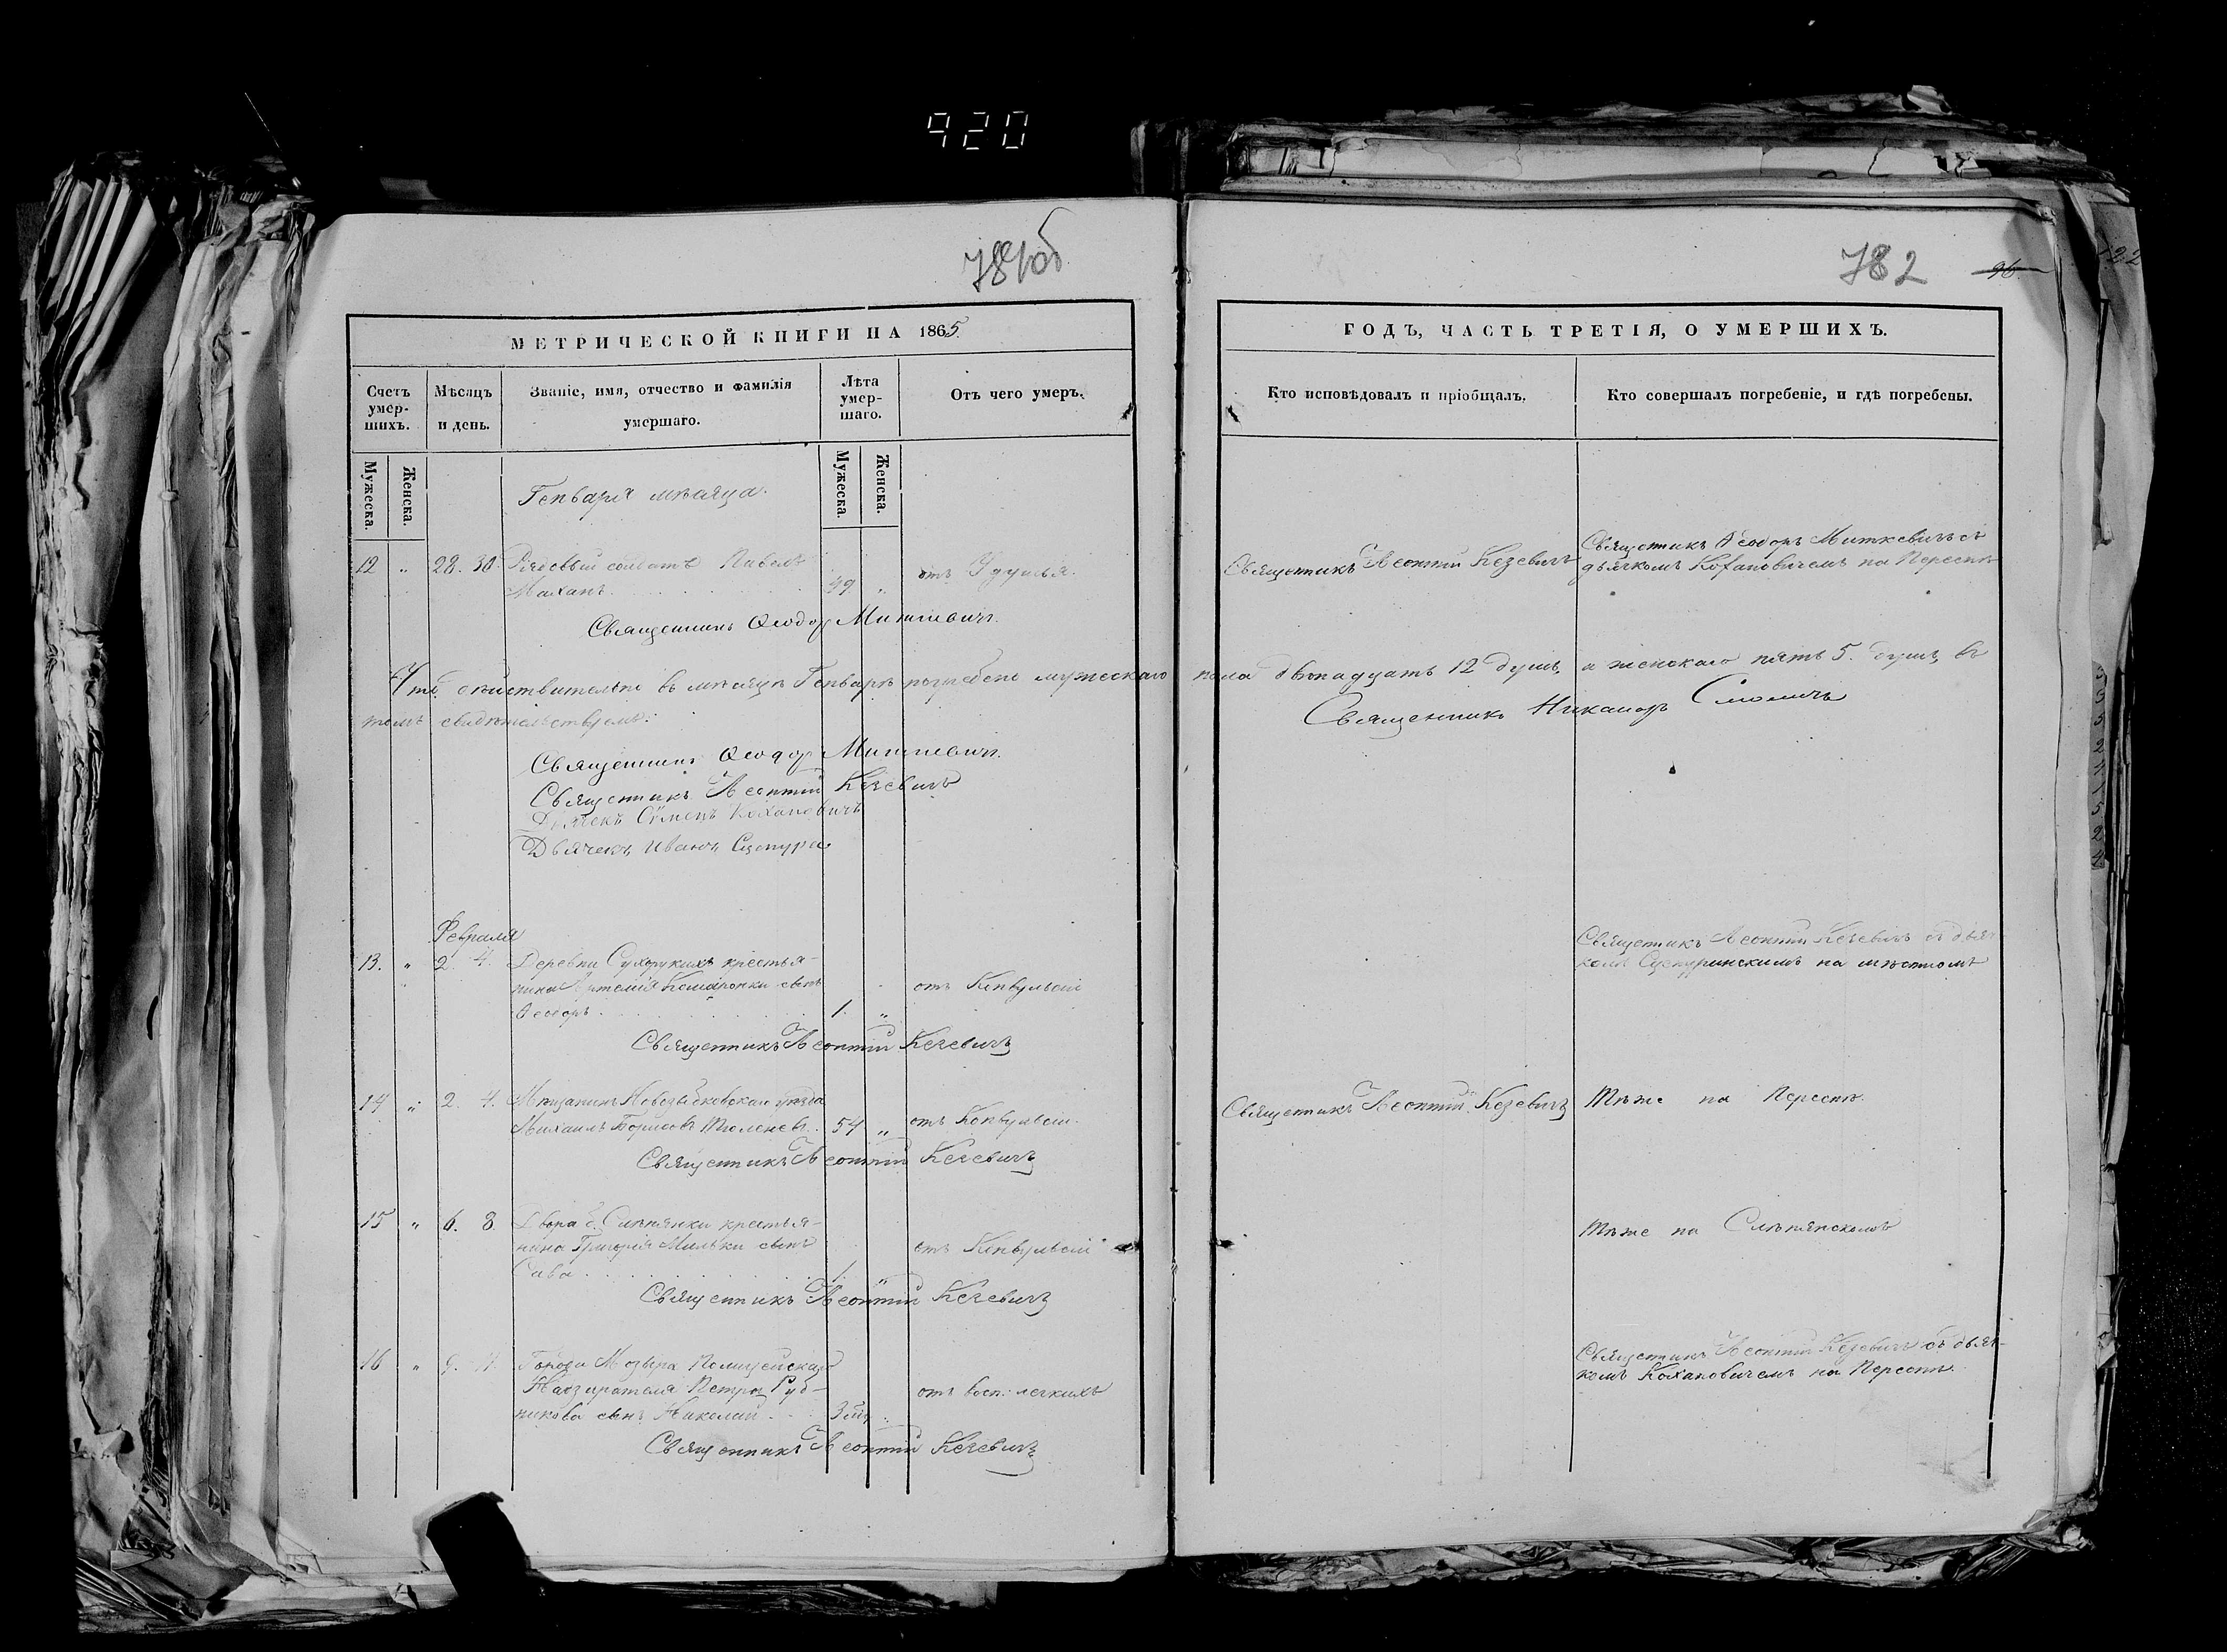 920
781об
782
96
122
МЕТРИЧЕСКОЙ КНИГИ НА 1865
ГОДЪ, ЧАСТЬ ТРЕТІЯ, О УМЕРШИХЪ.
Счетъ умер-шихъ.
Мѣсяцъ и день.
Званіе, имя, отчество и фамилія умершаго.
Лѣта умер-шаго.
Отъ чего умеръ.
Кто исповѣдовалъ и пріобщалъ.
Кто совершалъ погребеніе, и гдѣ погребены.
Мужеска.
Женска.
Мужеска.
Женска.
Генваря мѣсяца.
12 „ 28. 30. Рядовый солдатъ Павелъ
49 „ отъ Удушья.
Священникъ Леонтій Кезевичъ
Священникъ Ѳеодоръ Миткевичъ съ
дьячкомъ Кохановичемъ на Переспѣ
Священникъ Ѳеодоръ Миткевичъ.
Что дѣйствительно въ мѣсяцѣ Генварѣ погребено мужескаго пола двѣнадцать 12 душъ, а женскаго пять 5. душъ, въ
томъ свидѣтельствуемъ:
Священникъ Никаноръ Смоличъ
Священникъ Ѳеодоръ Миткевичъ.
Священникъ Леонтій Кезевичъ
Дьячекъ Кохановичъ
Дьячекъ Иванъ Сцепура
Февраля
13. „ 2. 4. Деревни Сухорукихъ крестья-
нина Артемія сынъ
Ѳеодоръ. 1. „
отъ Конвульсіи
Священникъ Леонтій Кезевичъ съ дьяч-
комъ Сцепуринскимъ на мѣстномъ
Священникъ Леонтій Кезевичъ
14 „ 2. 4. Мѣщанинъ Новозыбковскаго уѣзда
Михаилъ Борисовъ Тюленевъ. 54 „ отъ Конвульсіи.
Священникъ Леонтій Кезевичъ
Тѣже на Переспѣ.
Священникъ Леонтій Кезевичъ
15 „ 6. 8 Двора Слѣпянки крестья-
нина Григорія Мильки сынъ
Сава. 1. „
отъ Конвульсіи
Тѣже на Слѣпянскомъ
Священникъ Леонтій Кезевичъ
16 „ 9. 11. Города Мозыря Полицейскаго
Надзирателя Петра Руд-
никова сынъ Николай
отъ восп: легкихъ
Священникъ Леонтій Кезевичъ съ дьяч-
комъ Кохановичемъ на Переспѣ.
Священникъ Леонтій Кезевичъ